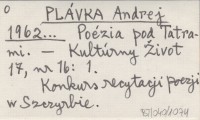 o
PLÁVKA Andrej
1962... Poézia pod Tatra-
mi. — Kultúrny Život
17, nr 16: 1.
Konkurs recytacji poezji
w Szczyrbie.